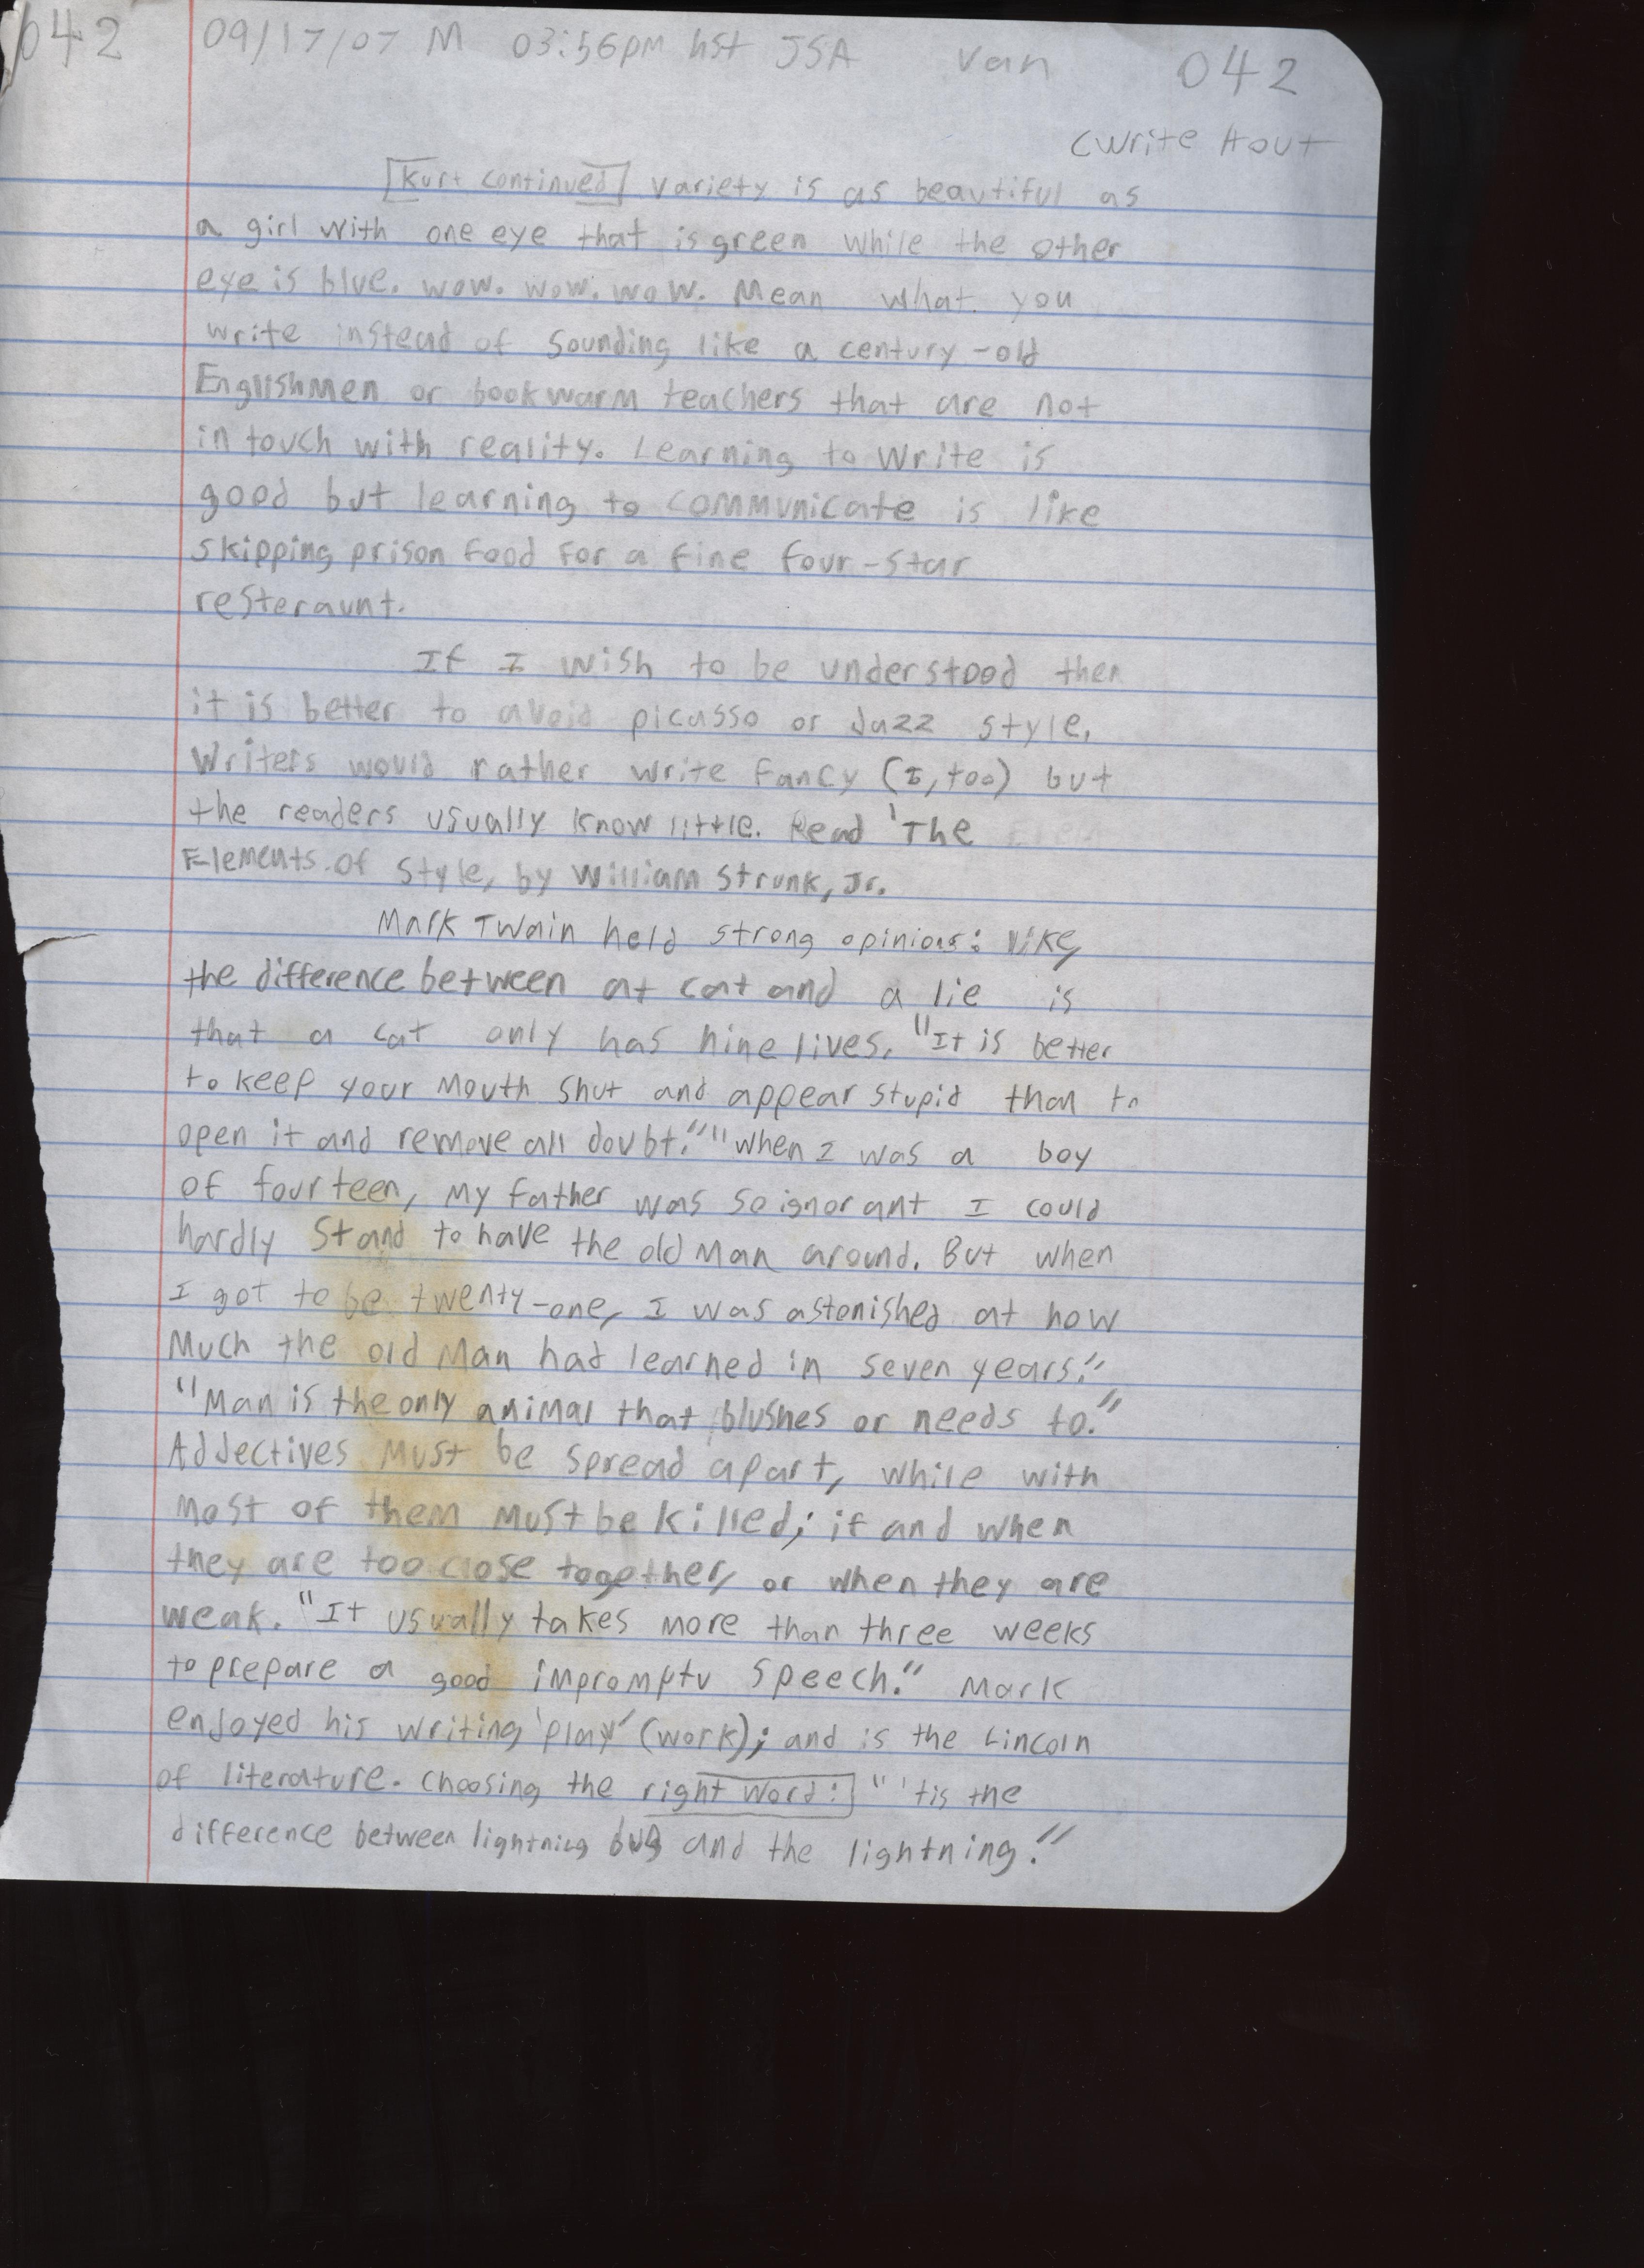 042 09/17/07 M 03:56pm hst JSA Van 042
Write Hout
[Kurt continued] variety is as beautiful as
a girl with one eye that is green while the other
eye is blue. wow. wow. wow. Mean what you
write instead of sounding like a century-old
Englishmen or bookwarm teachers that are not
in touch with reality. Learning to write is
good but learning to communicate is like
skipping prison food for a fine four-star
resteraunt.
If I wish to be understood then
it is better to avoid picasso or Jazz style,
Writers would rather write fancy (I, too) but
the readers usually know little. Read 'The
Elements of Style, by William Strunk, Jr.
Mark Twain held strong opinions: like,
the difference between at cat and a lie is
that a cat only has nine lives. "It is better
to keep your mouth shut and appear stupid than to
open it and remove all doubt." "When I was a boy
of fourteen, my father was so ignorant I could
hardly stand to have the old man around. But when
I got to be twenty-one, I was astonished at how
much the old man had learned in seven years."
"Man is the only animal that blushes or needs to."
Adjectives must be spread apart, while with
most of them must be killed; if and when
they are too close together, or when they are
weak. "It usually takes more than three weeks
to prepare a good impromptu speech." Mark
enjoyed his writing 'play' (work); and is the Lincoln
of literature. Choosing the right word: "'tis the
difference between lightning bug and the lightning."